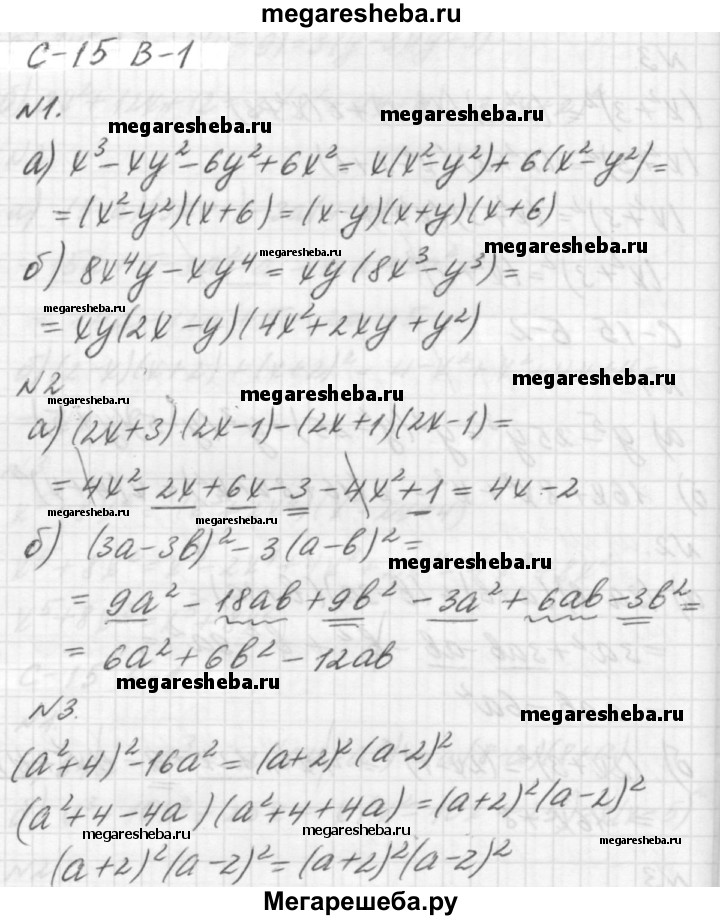 megaresheba.ru
С-15 В-1
№1.
megaresheba.ru megaresheba.ru
а) x³-xy²-6y²+6x²= x(x²-y²)+6(x²-y²)=
megaresheba.ru
=(x²-y²)(x+6)=(x-y)(x+y)(x+6)
megaresheba.ru megaresheba.ru
б) 8x⁴y-xy⁴= xy(8x³-y³)=
megaresheba.ru
= xy(2x-y)(4x²+2xy+y²)
№2
megaresheba.ru megaresheba.ru megaresheba.ru
а) (2x+3)(2x-1)-(2x+1)(2x-1)=
megaresheba.ru
= 4x²-2x+6x-3-4x²+1= 4x-2
megaresheba.ru megaresheba.ru
б) (3a-3b)²-3(a-b)²=
megaresheba.ru
= 9a²-18ab+9b²-3a²+6ab-3b²=
= 6a²+6b²-12ab
megaresheba.ru
№3.
megaresheba.ru
(a²+4)²-16a²= (a+2)²(a-2)²
(a²+4-4a)(a²+4+4a)=(a+2)²(a-2)²
megaresheba.ru megaresheba.ru megaresheba.ru
(a+2)²(a-2)²=(a+2)²(a-2)²
Мегарешеба.ру